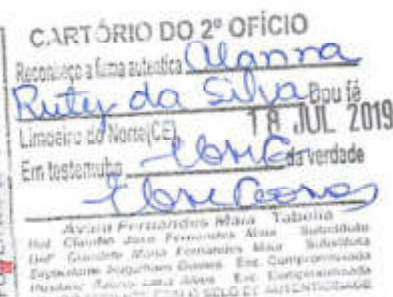 CARTÓRIO DO 2º OFÍCIO
Reconheço a firma autentica Alanna
Ruty da Silva Dou fé
Limoeiro do Norte(CE), 18 JUL 2019
Em testemunho da verdade
Avani Fernandes Maia Tabeliã
Bel Claudio José Fernandes Maia Substituto
Maria Fernandes Maia Substituta
Gomes Esc. Compromissada
Lima Esc. Compromissada
SELO DE AUTENTICIDADE